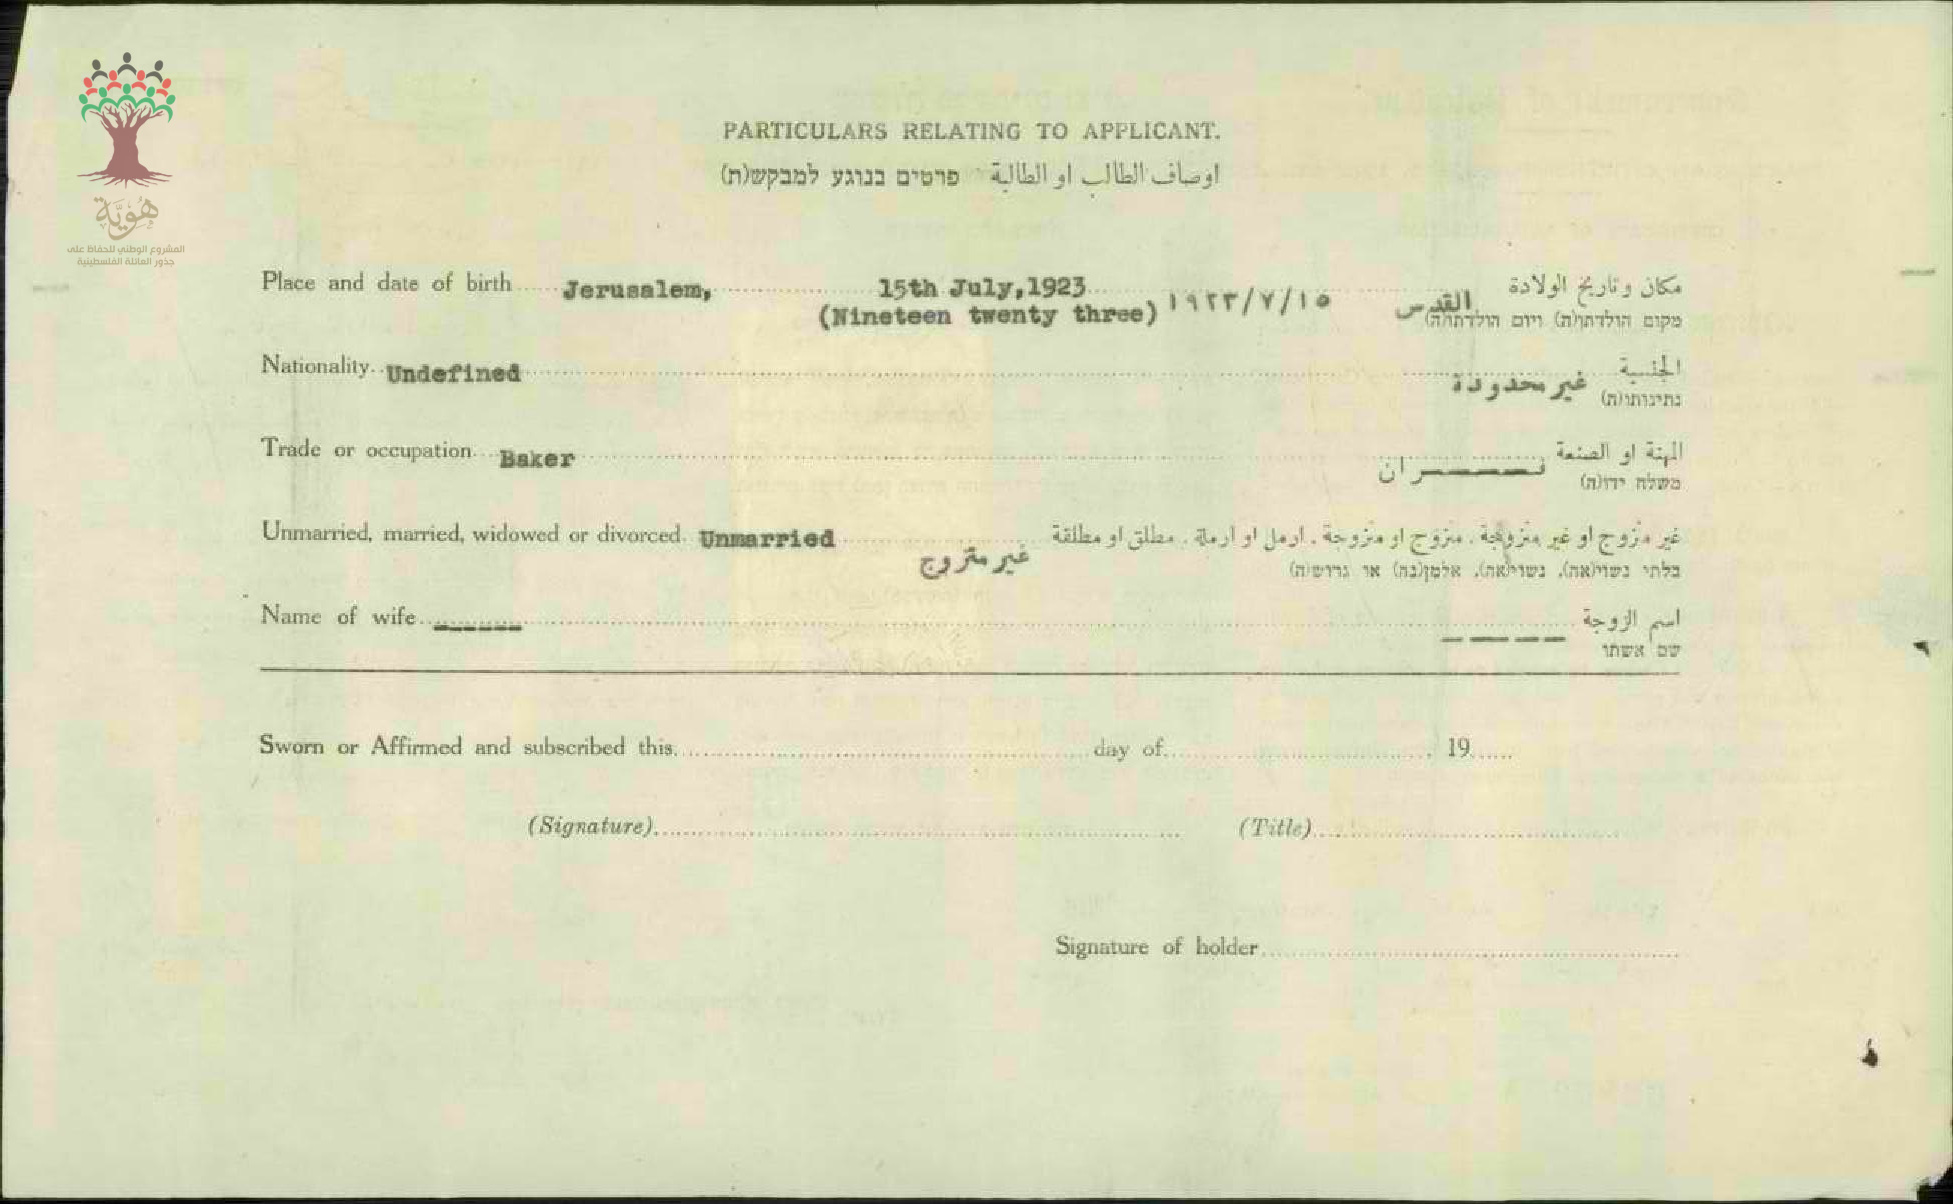 هُوِيَّة
المشروع الوطني للحفاظ على
جذور العائلة الفلسطينية
PARTICULARS RELATING TO APPLICANT.
اوصاف الطالب او الطالبة פרטים בנוגע למבקש(ת)
Place and date of birth Jerusalem, 15th July,1923 مكان وتاريخ الولادة
(Nineteen twenty three) ١٩٢٣/٧/١٥ القدس
מקום הולדתו(ה) ויום הולדתו(ה)
Nationality Undefined الجنسية
غير محدودة
נתינותו(ה)
Trade or occupation Baker المهنة او الصنعة
فـــران
משלח ידו(ה)
Unmarried, married, widowed or divorced Unmarried غير متزوج او غير متزوجة . متزوج او متزوجة . ارمل او ارملة . مطلق او مطلقة
غير متزوج
בלתי נשוי(אה), נשוי(אה), אלמן(נה) או גרוש(ה)
Name of wife ------ اسم الزوجة
----
שם אשתו
Sworn or Affirmed and subscribed this day of 19
(Signature) (Title)
Signature of holder